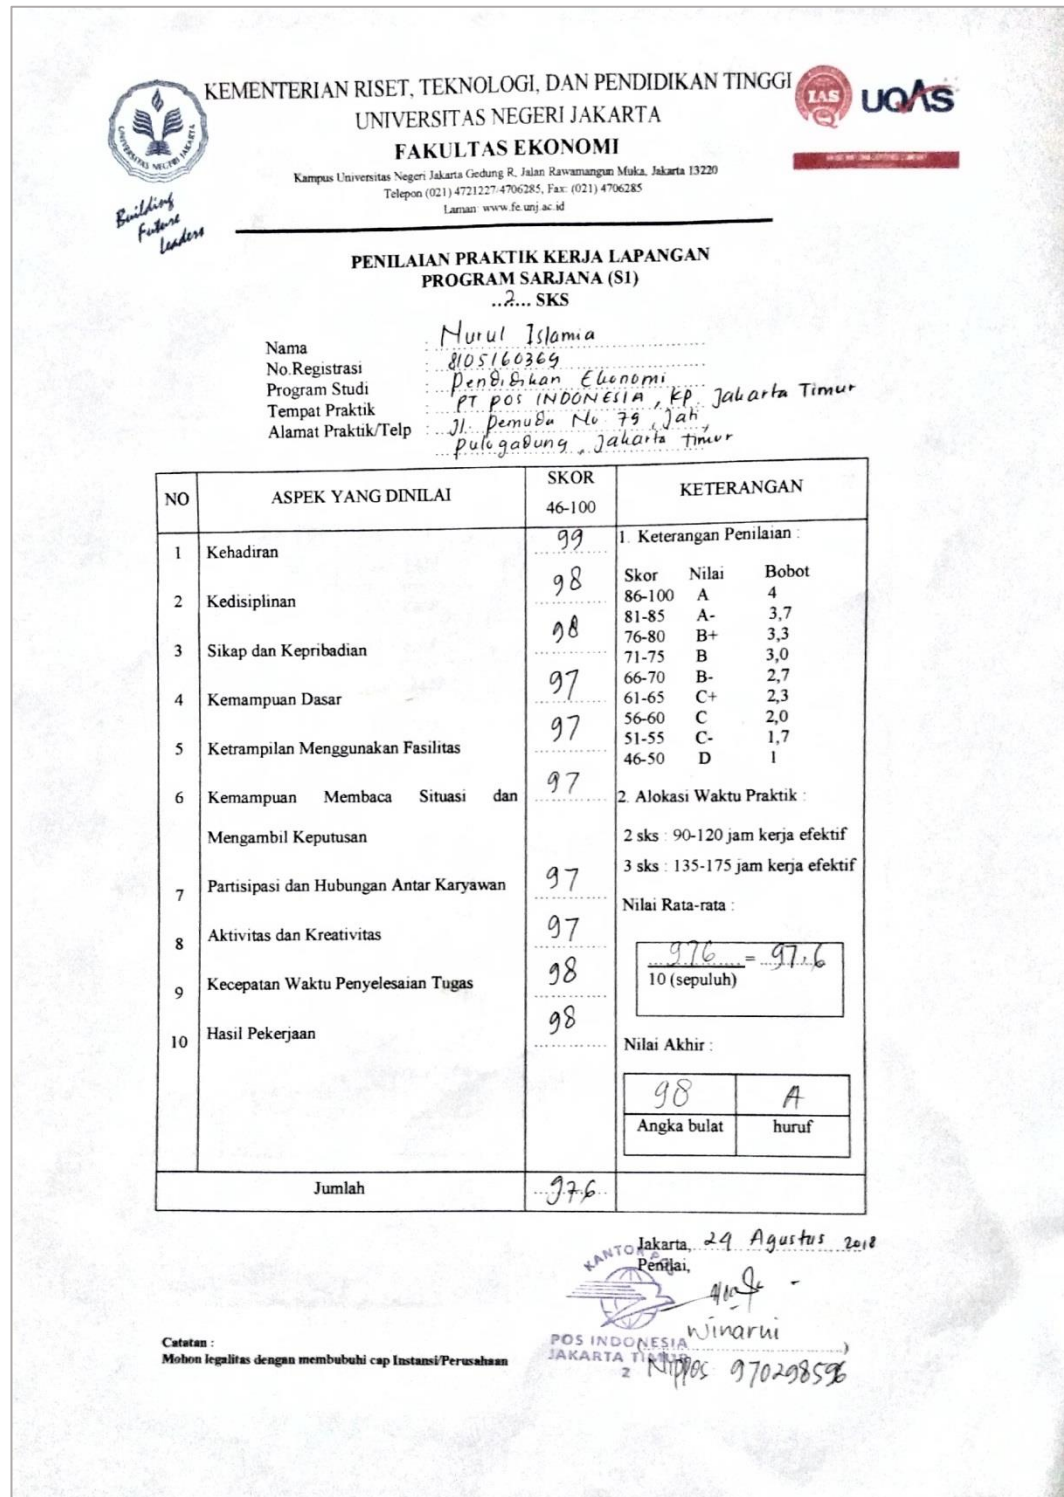 KEMENTERIAN RISET, TEKNOLOGI, DAN PENDIDIKAN TINGGI
UNIVERSITAS NEGERI JAKARTA
FAKULTAS EKONOMI
Kampus Universitas Negeri Jakarta Gedung R, Jalan Rawamangun Muka, Jakarta 13220
Telepon (021) 4721227/4706285, Fax: (021) 4706285
Laman: www.fe.unj.ac.id
UNIVERSITAS NEGERI JAKARTA
Building
Future
Leaders
IAS
UQAS
PENILAIAN PRAKTIK KERJA LAPANGAN
PROGRAM SARJANA (S1)
..2... SKS
Nama : Nurul Islamia
No.Registrasi : 8105160369
Program Studi : Pendidikan Ekonomi
Tempat Praktik : PT POS INDONESIA, KP. Jakarta Timur
Alamat Praktik/Telp : Jl. Pemuda No. 79, Jati,
Pulogadung, Jakarta Timur
NO ASPEK YANG DINILAI SKOR 46-100 KETERANGAN
1 Kehadiran 99
2 Kedisiplinan 98
3 Sikap dan Kepribadian 98
4 Kemampuan Dasar 97
5 Ketrampilan Menggunakan Fasilitas 97
6 Kemampuan Membaca Situasi dan 97
Mengambil Keputusan
7 Partisipasi dan Hubungan Antar Karyawan 97
8 Aktivitas dan Kreativitas 97
9 Kecepatan Waktu Penyelesaian Tugas 98
10 Hasil Pekerjaan 98
1. Keterangan Penilaian :
Skor Nilai Bobot
86-100 A 4
81-85 A- 3,7
76-80 B+ 3,3
71-75 B 3,0
66-70 B- 2,7
61-65 C+ 2,3
56-60 C 2,0
51-55 C- 1,7
46-50 D 1
2. Alokasi Waktu Praktik :
2 sks : 90-120 jam kerja efektif
3 sks : 135-175 jam kerja efektif
Nilai Rata-rata :
976 = 97,6
10 (sepuluh)
Nilai Akhir :
98 A
Angka bulat huruf
Jumlah 976
Jakarta, 24 Agustus 2018
Penilai,
Winarni
Nippos 970298596
KANTOR
POS INDONESIA
JAKARTA TIMUR
2
Catatan :
Mohon legalitas dengan membubuhi cap Instansi/Perusahaan